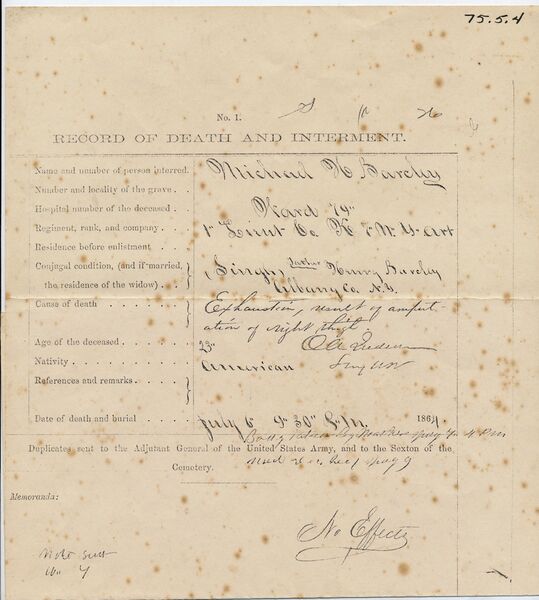 75.5.4
No. 1.
RECORD OF DEATH AND INTERMENT.
Name and number of person interred. Michael H Barclay
Number and locality of the grave . .
Hospital number of the deceased . . Ward 79"
Regiment, rank, and company . . . 1" Lieut Co. K 7" N. Y. Art
Residence before enlistment . . .
Conjugal condition, (and if married, Single, Father Henry Barclay
the residence of the widow) . . . Albany Co. N.Y.
Cause of death . . . . . . Exhaustion, result of amput-
ation of right thigh.
Age of the deceased . . . . . 23"
Nativity . . . . . . . American
References and remarks . . . .
Date of death and burial . . . . July 6" 9" 30" P.M. 1864
Body July 7 4 PM
Duplicates sent to the Adjutant General of the United States Army, and to the Sexton of the
Cemetery.
Memoranda:
No Effects